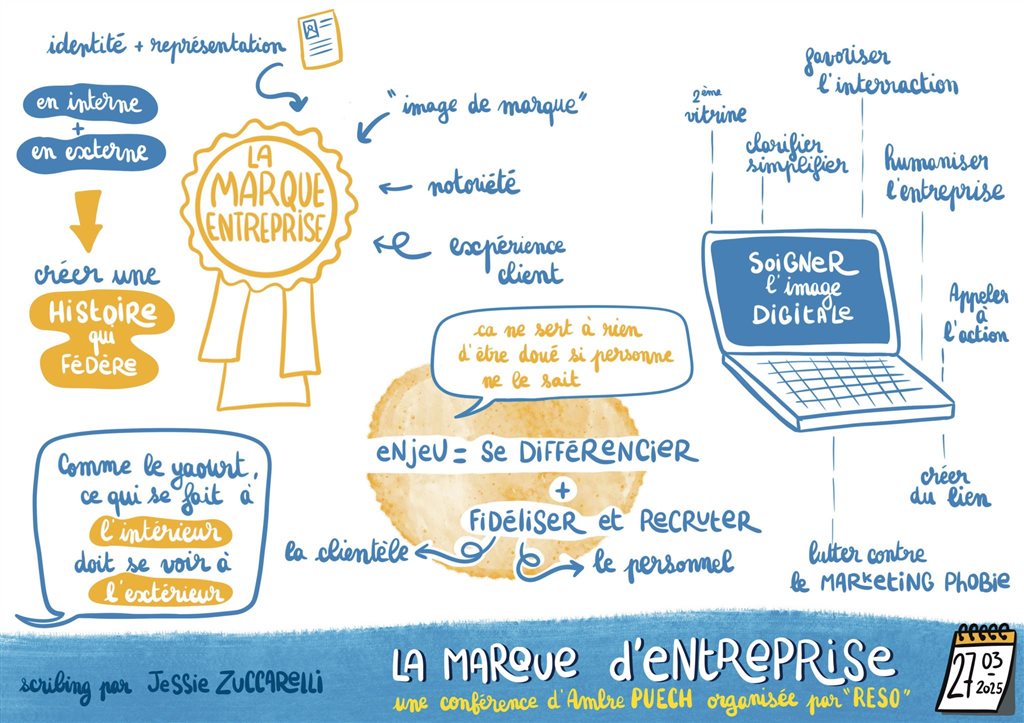 identité + représentation
en interne
+
en externe
créer une
HISTOIRE
qui
FÉDÈRE
LA
MARQUE
ENTREPRISE
"image de marque"
notoriété
expérience
client
2ème
vitrine
clarifier
simplifier
favoriser
l'interraction
humaniser
l'entreprise
Appeler
à
l'action
SOIGNER
l'image
DIGITALE
créer
du lien
lutter contre
le MARKETING PHOBIE
ca ne sert à rien
d'être doué si personne
ne le sait
ENJEU = SE DIFFÉRENCIER
+
FIDÉLISER ET RECRUTER
la clientèle
le personnel
Comme le yaourt,
ce qui se fait à
l'intérieur
doit se voir à
l'extérieur
scribing par Jessie ZUCCARELLI
LA MARQUE D'ENTREPRISE
une conférence d'Ambre PUECH organisée par "RESO"
27 03
2025